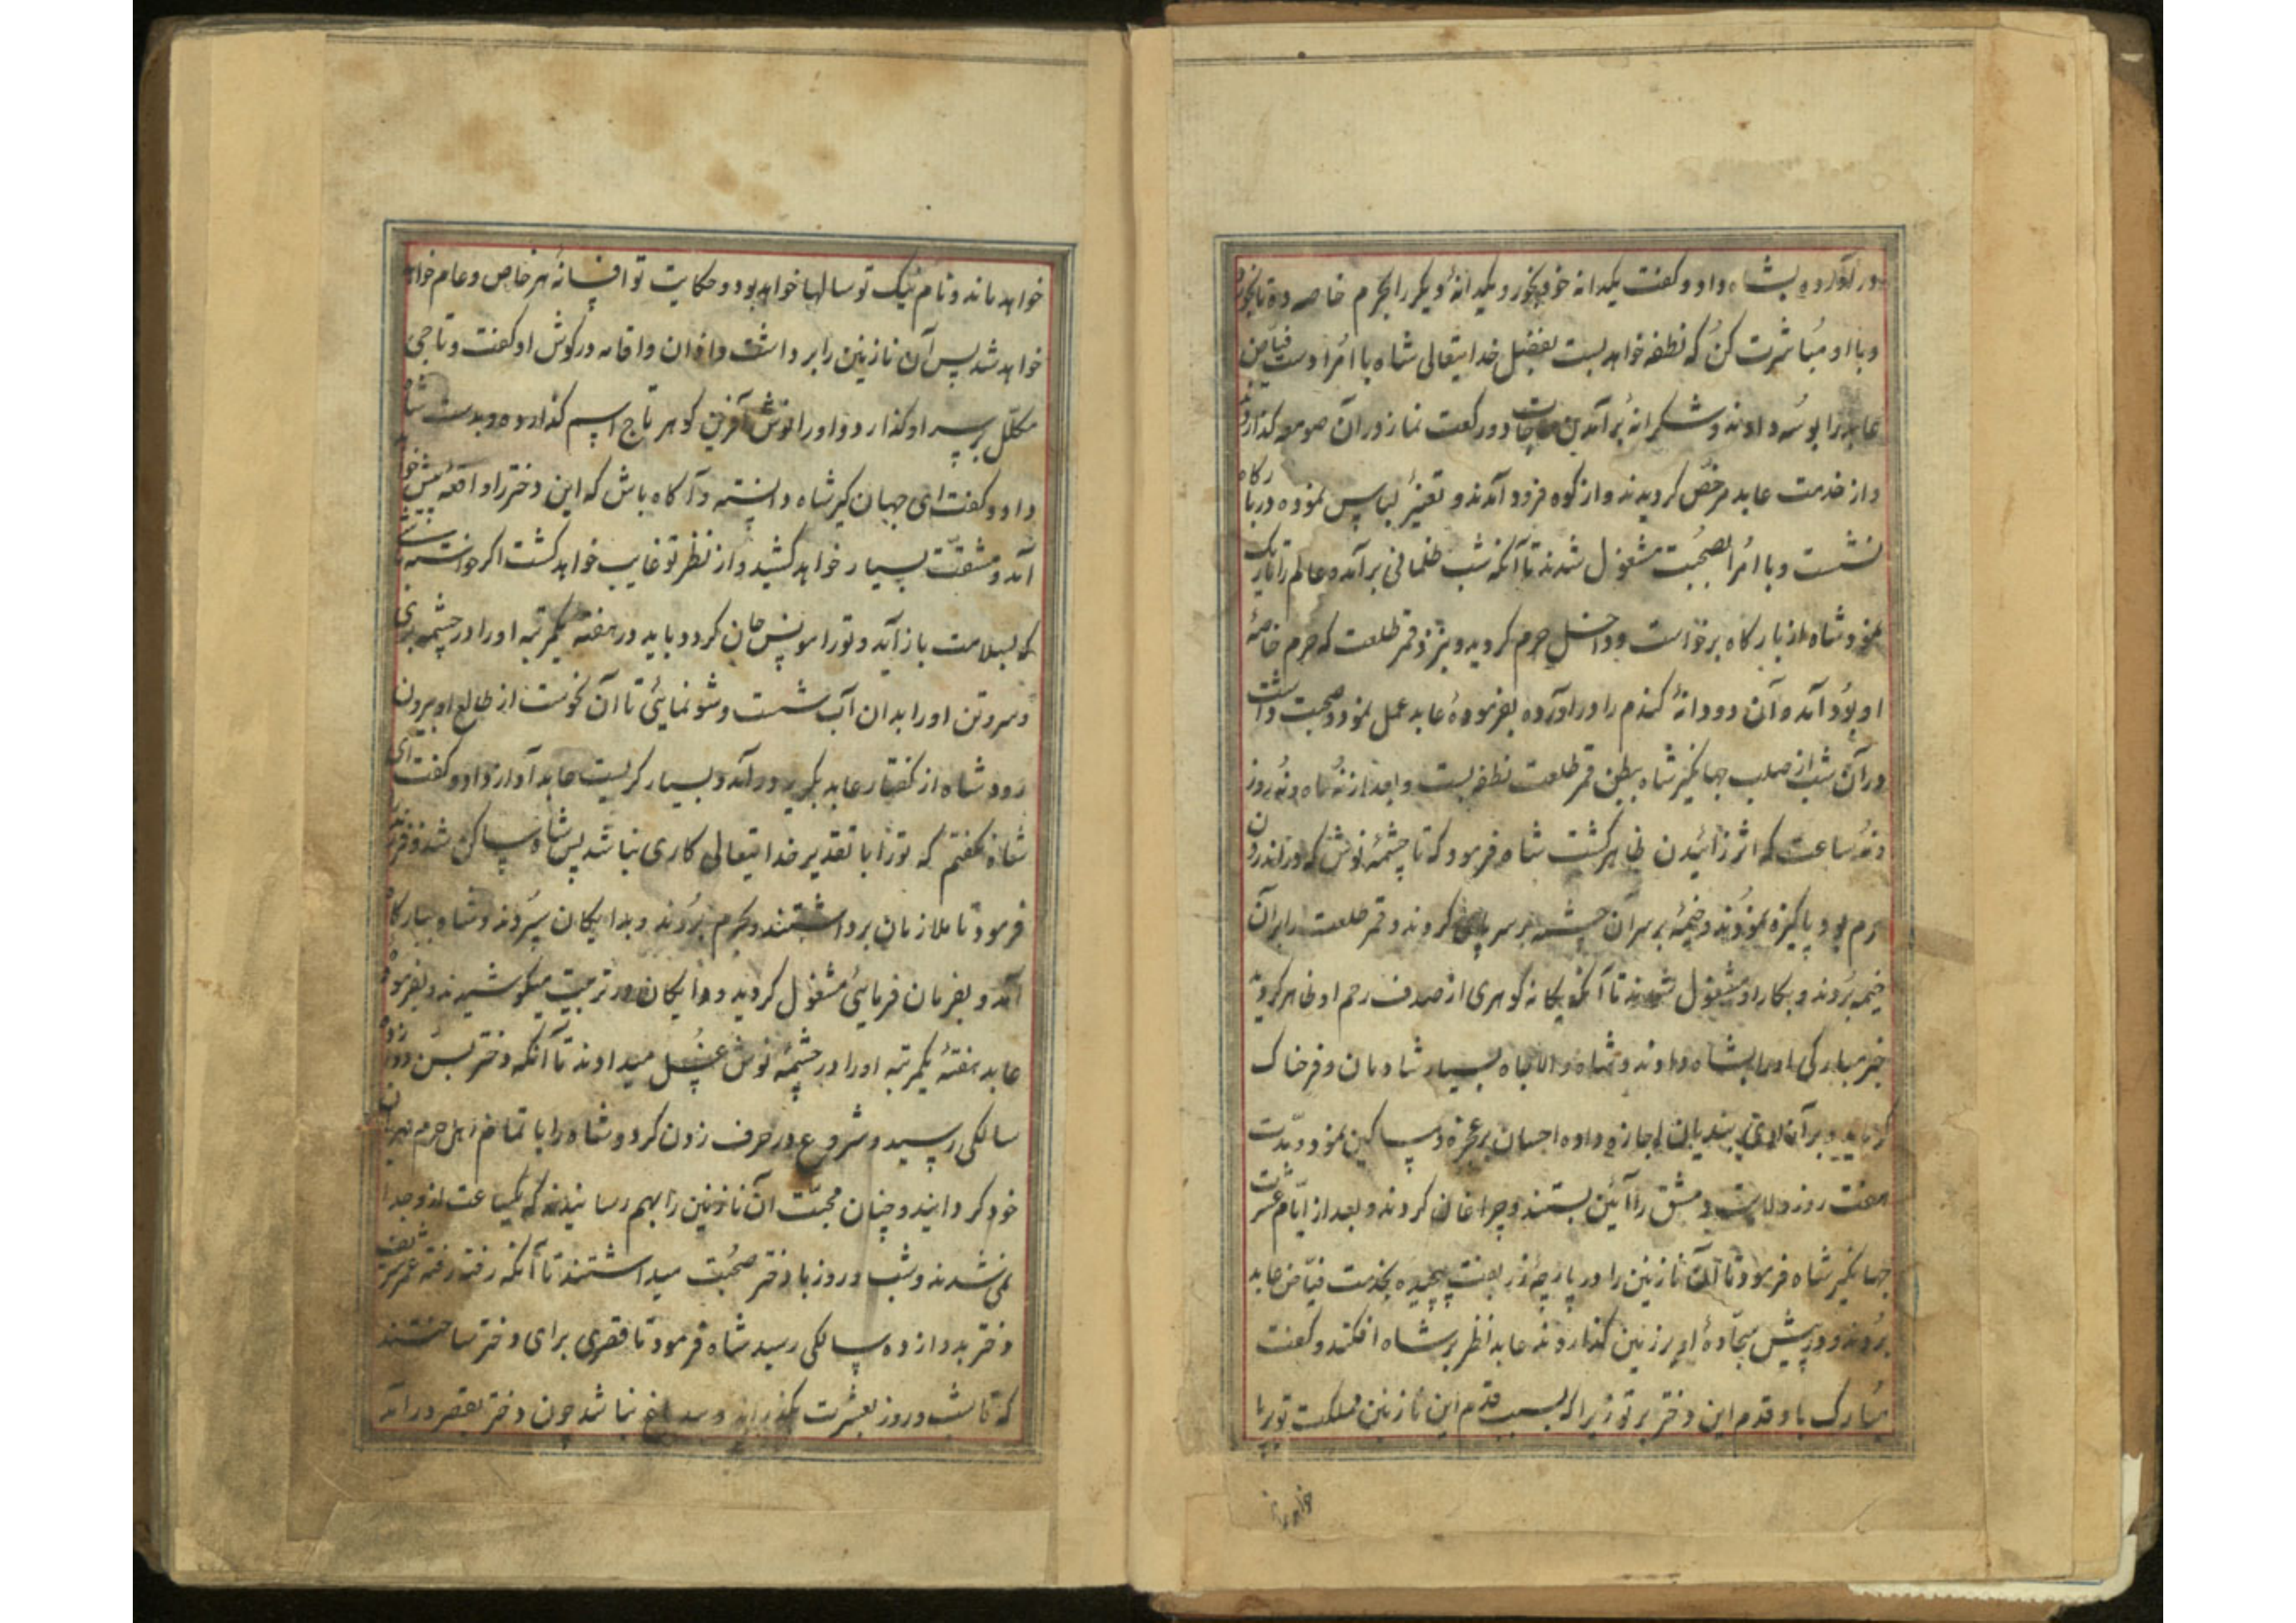 در آورده بشاه داد و کفت یکدانه خود بخور و یکدانهٔ دیکر را بحرم خاصه ده تا بخورد
و با او مُباشرت کنُ که نطفه خواهد بست بفضل خدایتعالی شاه با اُمرا دست فیاض
عابد را بوسُه دادند و شکرانهٔ برآمدن حاجات دو رکعت نماز در آن صومعه کذاردند
و از خدمت عابد مرخّص کردیدند و از کوه فرود آمدند و تغییرُ لباس نموده در بارکاه
نشست و با اُمرا بصُحبت مشغول شدند تا آنکه شب ظلمانی برآمده عالم را تاریک
نمود شاه از بارکاه برخواست و داخل حرم کردید و بنزد قمر طلعت که حرم خاصّهٔ
او بوُد آمده آن دو دانهٔ کندم را در آورده بفرمودهٔ عابد عمل نمود و صحبت داشت
در آن شب از صلب جهانکیر شاه ببطن قمر طلعت نطفه بست و بعد از نُه ماه و نُه روز
و نُه ساعت که اثر زائیدن ظاهر کشت شاه فرمود که تا چشمهٔ نوش که در اندرون
حرم بود پاکیزه نموُدند و خیمهٔ بر سر آن چشمه بر سر پای کردند و قمر طلعت را بر آن
خیمه برُدند و بکار او مشغول شدند تا آنکه یکانه کوهری از صدف رحم او ظاهر کردید
خبر مبارکی او را بشاه دادند و شاه والاجاه بسیار شادمان و فرخناک
کردید و بر آزادی بندیان اجازه داده احسان بر عجزه و مساکین نمود و مدّت
هفت روز ولایت دمشق را آئین بستند و چراغان کردند و بعد از ایّام عشرت
جهانکیر شاه فرمود تا آن نازنین را در پارچهٔ زربفت پیچیده بخدمت فیّاض عابد
برُدند و در پیش سجّادهٔ او بر زمین کذاردند عابد نظر بر شاه افکند و کفت
مبُارک باد قدم این دختر بر تو زیرا که بسبب قدم این نازنین مملکت تو برپا
خواهد ماند
خواهد ماند و نام نیک تو سالها خواهد بود و حکایت تو افسانهٔ هر خاص و عام خواهد
خواهد شد پس آن نازنین را برداشت و اذان و اقامه در کوش او کفت و تاجی
مکلّل بر سر او کذارد و او را نوش آفرین کوهر تاج اسم کذارده و بدست شاه
داد و کفت ای جهان کیر شاه دانسته و آکاه باش که این دختر را واقعهٔ پیش خواهد
آمد و مشقّت بسیار خواهد کشید و از نظر تو غایب خواهد کشت اکر خواسته باشی
که بسلامت باز آید و تو را مونس جان کردد باید در هفتهٔ یکمرتبه او را در چشمه بری
و سر و تن او را بدان آب شست و شو نمایئی تا آن نحوست از طالع او بیرون
رود شاه از کفتار عابد بکریه در آمد و بسیار کریست عابد آواز داد و کفت ای
شاه نکفتم که تو را با تقدیر خدایتعالی کاری نباشد پس شاه ساکن شد و فرزند را
فرمود تا ملازمان برداشتند و بحرم برُدند و بدایکان سپُردند و شاه ببارکاه
آمد و بفرمان فرمایئی مشغول کردید و دایکان در تربیت میکوشیدند و بفرمودهٔ
عابد هفتهٔ یکمرتبه او را در چشمهٔ نوش غسل میدادند تا آنکه دختر بسن دوازده
سالکی رسید و شروع در حرف زدن کرد و شاه را با تمام اهل حرم حیران
خود کردانید و چنان محبّت آن نازنین را بهم رسانیدند که یکساعت از او جدا
نمی شدند و شب و روز با دختر صحُبت میداشتند تا آنکه رفته رفته عمر شریف
دختر بدوازده سالکی رسید شاه فرمود تا قصری برای دختر ساختند
که تا شب و روز بعشرت بکذراند و بیدماغ نباشد چون دختر بقصر در آمد